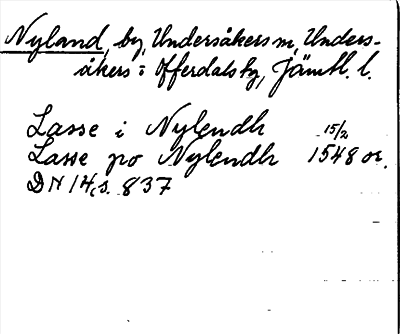 Nyland, by, Undersåkers sn, Unders-
åkers o Offerdals tg, Jämtl. l.
Lasse i Nylendh 15/2
Lasse po Nylendh 1548 or.
DN 14, s. 837